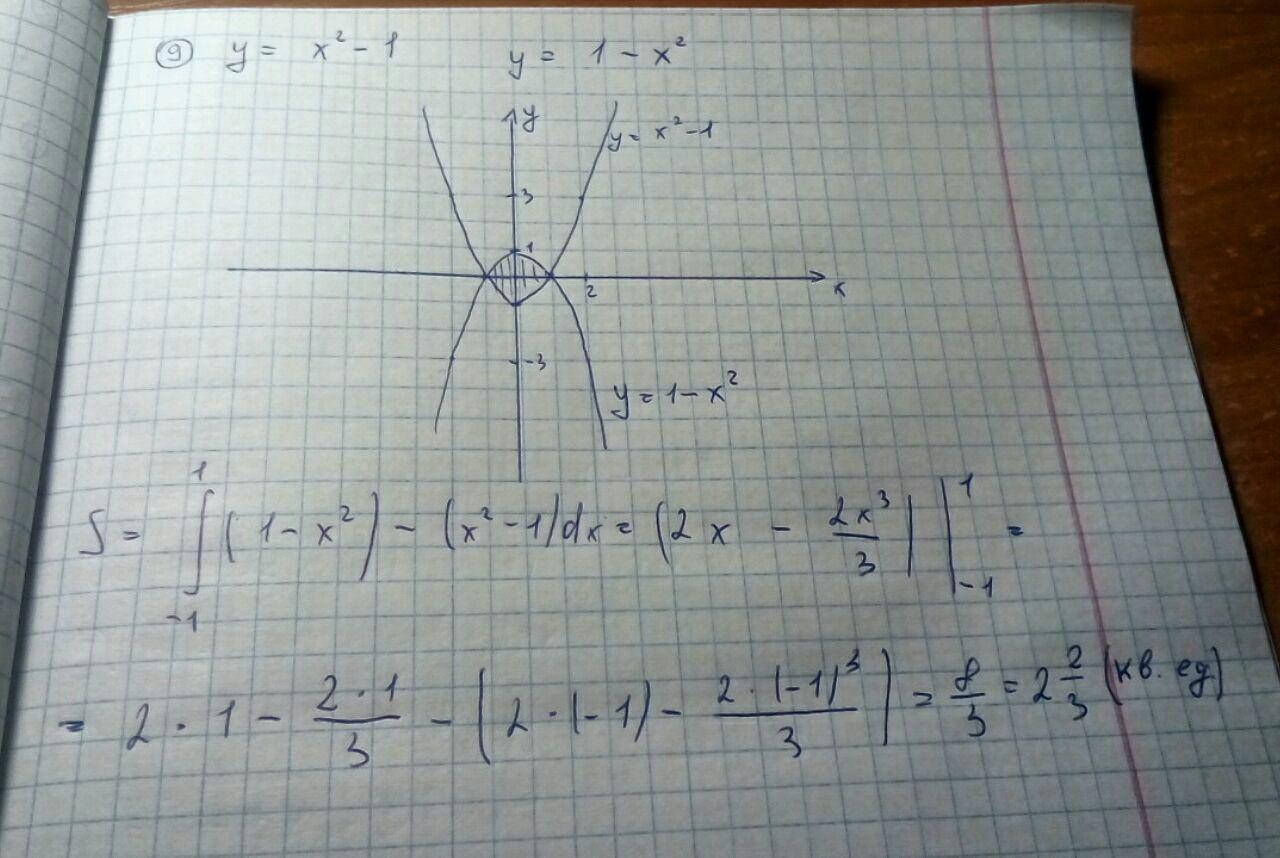 ⑨ y = x² - 1 y = 1 - x²
y
y = x² - 1
3
1
2 x
-3
y = 1 - x²
S = ∫₋₁¹ (1 - x²) - (x² - 1)dx = (2x - 2x³/3) |₋₁¹ =
= 2 · 1 - 2·1/3 - (2 · (-1) - 2·(-1)³/3) = 8/3 = 2 2/3 (кв. ед)